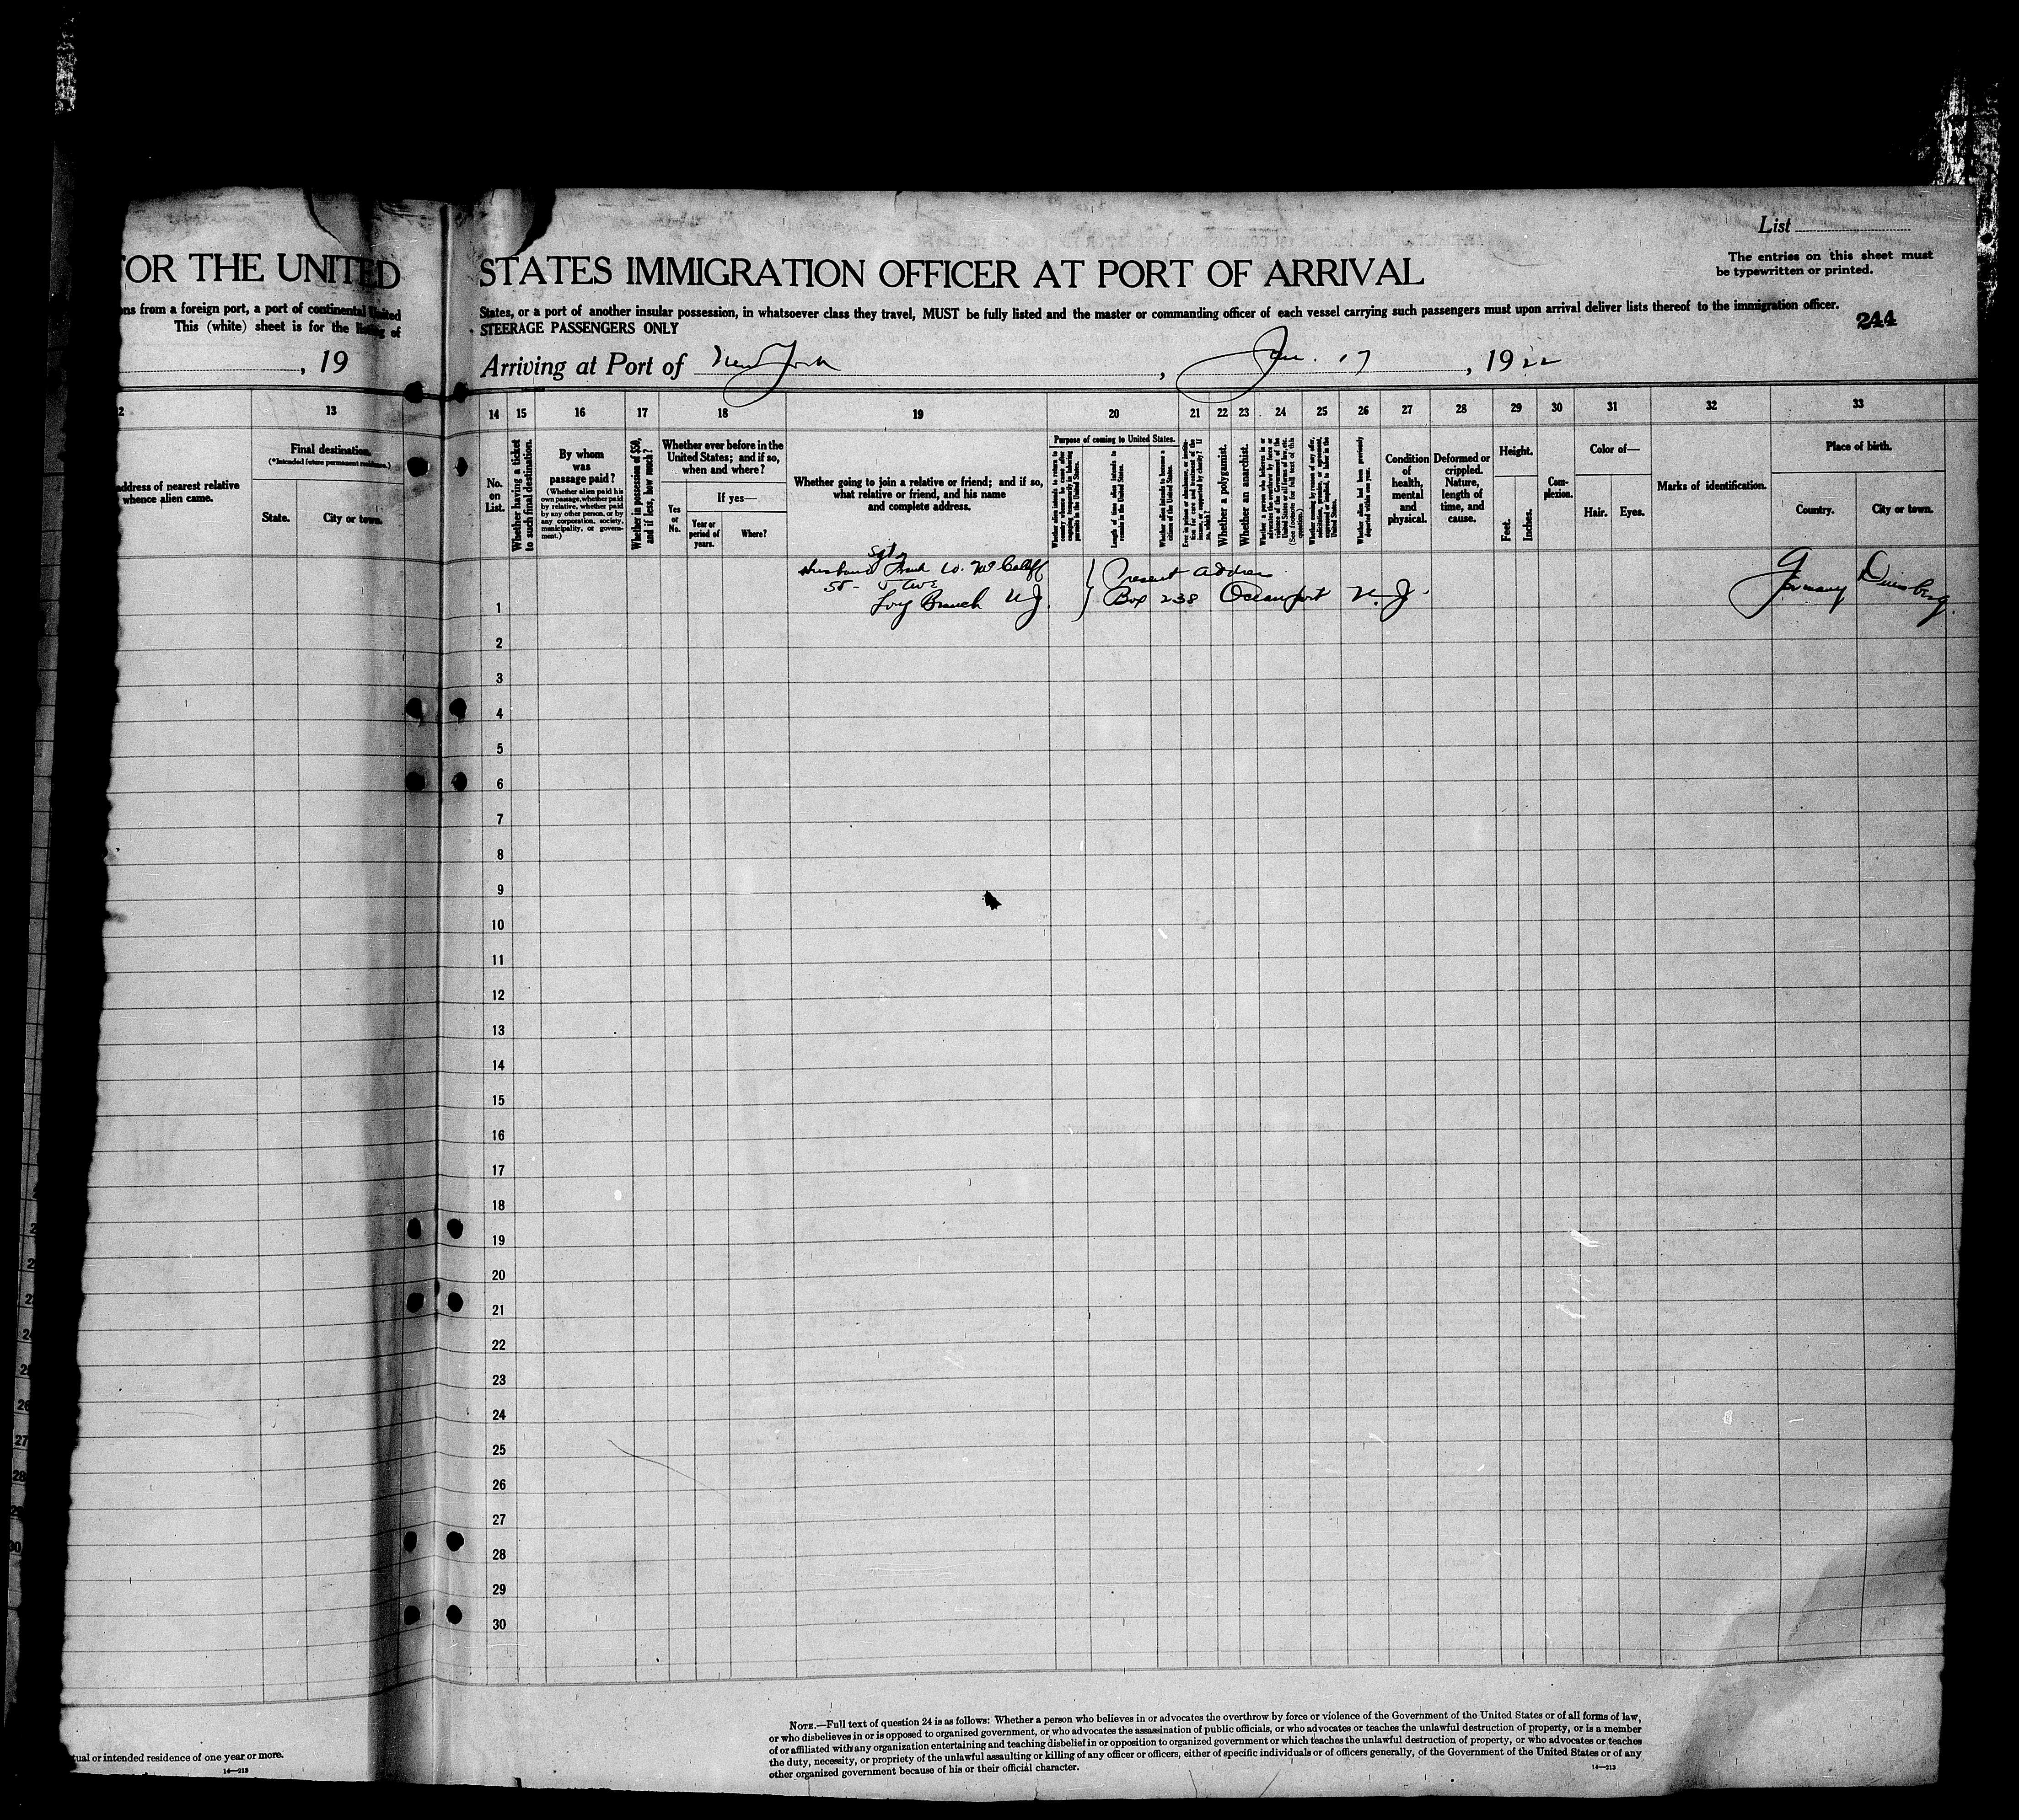 List
The entries on this sheet must
be typewritten or printed.
OR THE UNITED STATES IMMIGRATION OFFICER AT PORT OF ARRIVAL
ns from a foreign port, a port of continental United States, or a port of another insular possession, in whatsoever class they travel, MUST be fully listed and the master or commanding officer of each vessel carrying such passengers must upon arrival deliver lists thereof to the immigration officer.
This (white) sheet is for the listing of STEERAGE PASSENGERS ONLY
244
, 19
Arriving at Port of New York, Jan. 17, 1922
2 13 14 15 16 17 18 19 20 21 22 23 24 25 26 27 28 29 30 31 32 33
address of nearest relative
whence alien came.
Final destination.
(*Intended future permanent residence.)
State.
City or town.
No.
on
List.
Whether having a ticket
to such final destination.
By whom
was
passage paid?
(Whether alien paid his
own passage, whether paid
by relative, whether paid
by any other person, or by
any corporation, society,
municipality, or govern-
ment.)
Whether in possession of $50,
and if less, how much?
Whether ever before in the
United States; and if so,
when and where?
Yes
or
No.
If yes—
Year or
period of
years.
Where?
Whether going to join a relative or friend; and if so,
what relative or friend, and his name
and complete address.
Purpose of coming to United States.
Whether alien intends to return to
country whence he came after
engaging temporarily in laboring
pursuits in the United States.
Length of time alien intends to
remain in the United States.
Whether alien intends to become a
citizen of the United States.
Ever in prison or almshouse, or institu-
tion for care and treatment of the
insane, or supported by charity? If
so, which?
Whether a polygamist.
Whether an anarchist.
Whether a person who believes in or
advocates the overthrow by force or
violence of the Government of the
United States or all forms of law, etc.
(See footnote for full text of this
question.)
Whether coming by reason of any offer,
solicitation, promise, or agreement,
expressed or implied, to labor in the
United States.
Whether alien had been previously
deported within one year.
Condition
of
health,
mental
and
physical.
Deformed or
crippled.
Nature,
length of
time, and
cause.
Height.
Feet.
Inches.
Com-
plexion.
Color of—
Hair.
Eyes.
Marks of identification.
Place of birth.
Country.
City or town.
Sgt
Husband Frank W.
Long Branch N J.
Present address
Box 238 Oceanport N. J.
Germany Duisburg
1
2
3
4
5
6
7
8
9
10
11
12
13
14
15
16
17
18
19
20
21
22
23
24
25
26
27
28
29
30
NOTE.—Full text of question 24 is as follows: Whether a person who believes in or advocates the overthrow by force or violence of the Government of the United States or of all forms of law,
or who disbelieves in or is opposed to organized government, or who advocates the assassination of public officials, or who advocates or teaches the unlawful destruction of property, or is a member
of or affiliated with any organization entertaining and teaching disbelief in or opposition to organized government or which teaches the unlawful destruction of property, or who advocates or teaches
the duty, necessity, or propriety of the unlawful assaulting or killing of any officer or officers, either of specific individuals or of officers generally, of the Government of the United States or of any
other organized government because of his or their official character.
tual or intended residence of one year or more.
14—213
14—213